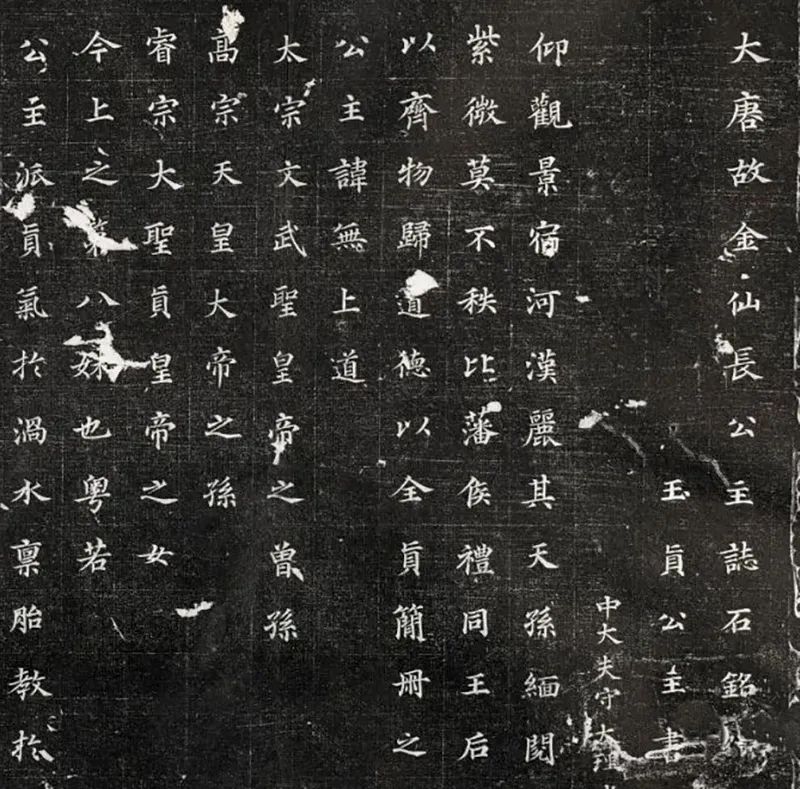 大唐故金仙長公主誌石銘并
玉真公主書
中大夫守大理
仰觀景宿河漢麗其天孫緬閲
紫微莫不秩比藩侯禮同王后
以齊物歸道德以全貞簡冊之
公主諱無上道
太宗文武聖皇帝之曾孫
高宗天皇大帝之孫
睿宗大聖真皇帝之女
今上之第八妹也粵若
公主派真氣於渦水禀胎教於